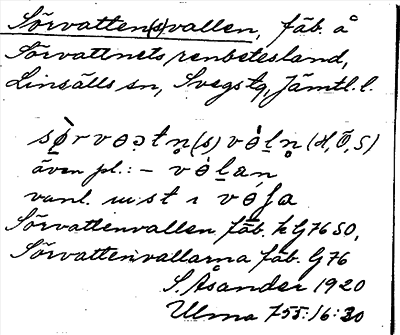 Sörvatten(s)vallen, fäb. å
Sörvattnets renbetesland,
Linsälls sn, Svegs tg, Jämtl. l.
även pl.: –
vanl.
Sörvattenvallen fäb. k G76 SO,
Sörvattenvallarna fäb. G76
S. Åsander 1920
Ulma 755:16:30